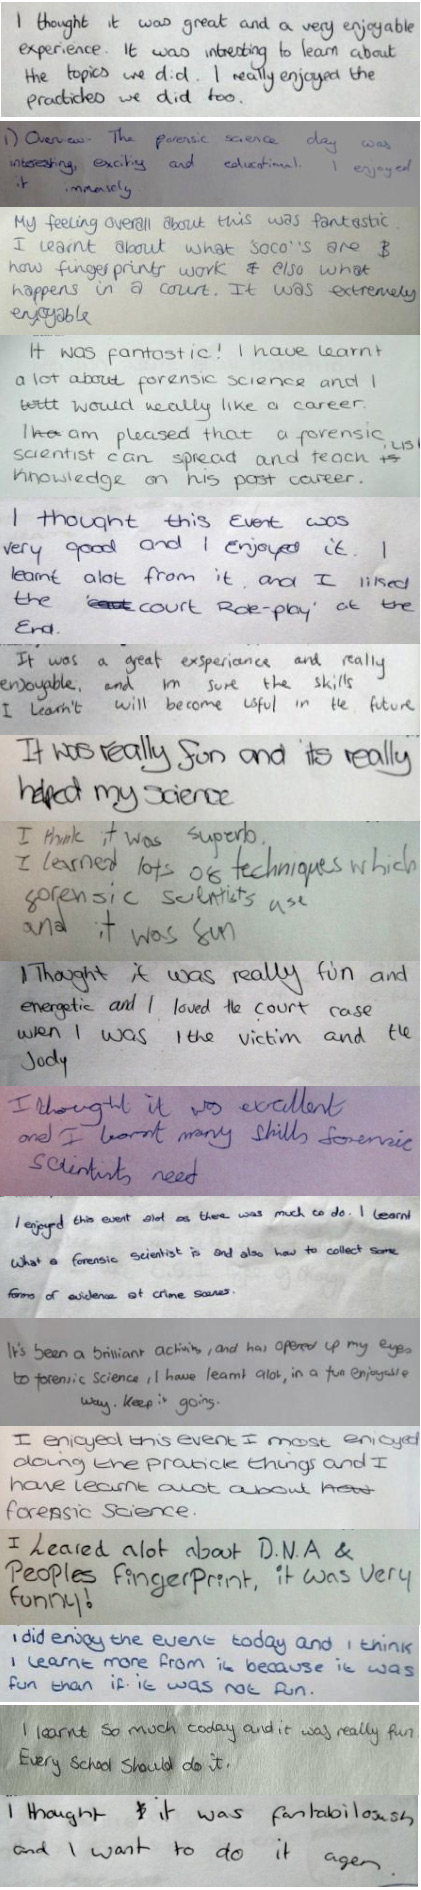 I thought it was great and a very enjoyable
experience. It was intresting to learn about
the topics we did. I really enjoyed the
practicles we did too.
1) Overview- The forensic science day was
interesting, exciting and educational. I enjoyed
it immensely.
My feeling overall about this was fantastic.
I learnt about what 'SOCO''s are &
how fingerprints work & also what
happens in a court. It was extremely
enjoyable
It was fantastic! I have learnt
a lot about forensic science and I
would really like a career.
I am pleased that a forensic
scientist can spread and teach us
knowledge on his past career.
I thought this Event was
very good and I Enjoyed it. I
learnt alot from it and I liked
the 'court Role-play' at the
End.
It was a great exsperiance and really
enjoyable, and im sure the skills
I Learn't will become usful in the future
It was really fun and its really
helped my science
I think it was superb.
I learned lots of techniques which
forensic scientists use
and it was fun
I Thought it was really fun and
energetic and I loved the court case
when I was the victim and the
Jody
I thought it was excellent
and I learnt many skills forensic
scientists need
I enjoyed this event alot as there was much to do. I learnt
what a forensic scientist is and also how to collect some
forms of evidence at crime scenes.
It's been a brilliant activity, and has opened up my eyes
to forensic science, I have learnt alot, in a fun enjoyable
way. Keep it going.
I enjoyed this event I most enjoyed
doing the praticle things and I
have learnt alot about
forensic science.
I Leared alot about D.N.A &
Peoples fingerprint, it was very
funny!
I did enjoy the event today and I think
I learnt more from it because it was
fun than if it was not fun.
I learnt so much today and it was really fun
Every school should do it.
I thought it was fantabiloush
and I want to do it agen.